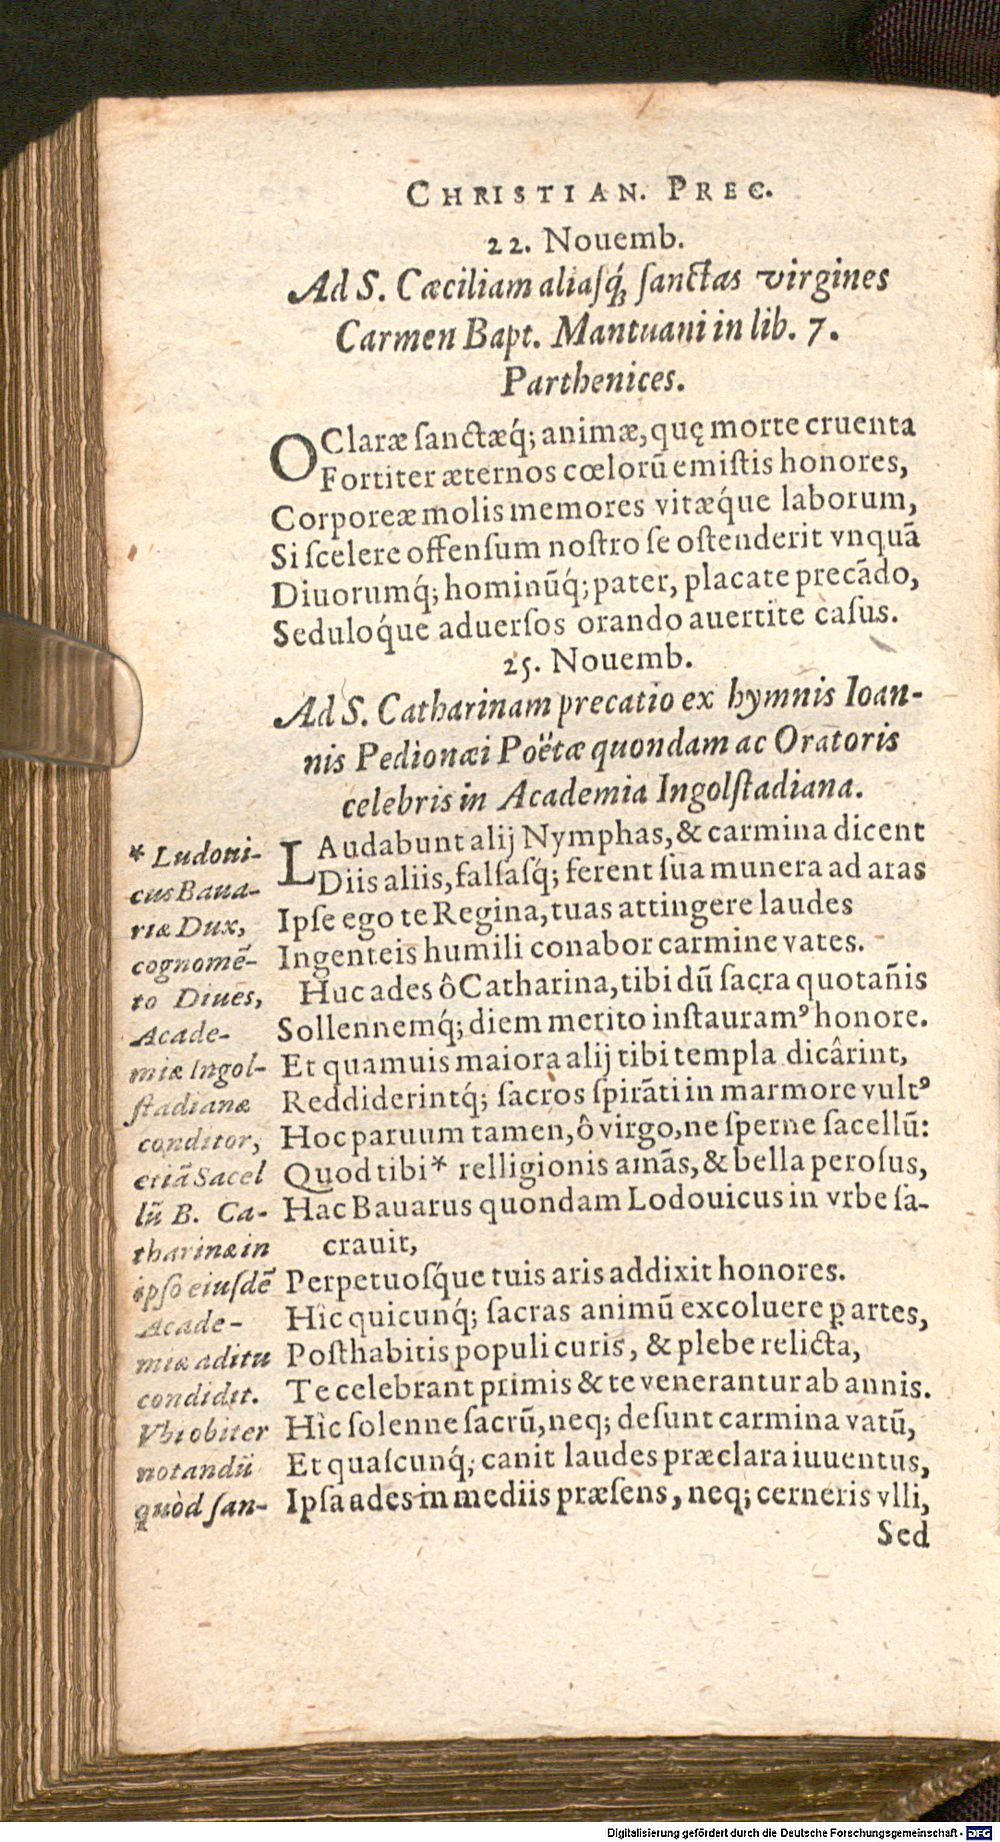 CHRISTIAN. PREC.
22. Nouemb.
Ad S. Cæciliam aliasq́; sanctas virgines
Carmen Bapt. Mantuani in lib. 7.
Parthenices.
O Claræ sanctæq́; animæ, quę morte cruenta
Fortiter æternos cœlorū emistis honores,
Corporeæ molis memores vitæq́ue laborum,
Si scelere offensum nostro se ostenderit vnquā
Diuorumq́; hominūq́; pater, placate precādo,
Seduloq́ue aduersos orando auertite casus.
25. Nouemb.
Ad S. Catharinam precatio ex hymnis Ioan-
nis Pedionæi Poëtæ quondam ac Oratoris
celebris in Academia Ingolstadiana.
LAudabunt alij Nymphas, & carmina dicent
Diis aliis, falsasq́; ferent sua munera ad aras
Ipse ego te Regina, tuas attingere laudes
Ingenteis humili conabor carmine vates.
Huc ades ô Catharina, tibi dū sacra quotañis
Sollennemq́; diem merito instauramꝰ honore.
Et quamuis maiora alij tibi templa dicârint,
Reddiderintq́; sacros spirāti in marmore vultꝰ
Hoc paruum tamen, ô virgo, ne sperne sacellū:
Quod tibi* relligionis amās, & bella perosus,
Hac Bauarus quondam Lodouicus in vrbe sa-
crauit,
Perpetuosq́ue tuis aris addixit honores.
Hîc quicunq́; sacras animū excoluere ꝑ artes,
Posthabitis populi curis, & plebe relicta,
Te celebrant primis & te venerantur ab annis.
Hîc solenne sacrū, neq; desunt carmina vatū,
Et quascunq́; canit laudes præclara iuuentus,
Ipsa ades in mediis præsens, neq; cerneris vlli,
Sed
* Ludoui-
cus Baua-
riæ Dux,
cognomē-
to Diues,
Acade-
miæ Ingol-
stadianæ
conditor,
etiā Sacel
lū B. Ca-
tharinæ in
ipso eiusdē
Acade-
miæ aditu
condidit.
Vbi obiter
notandū
quòd san-
Digitalisierung gefördert durch die Deutsche Forschungsgemeinschaft - DFG